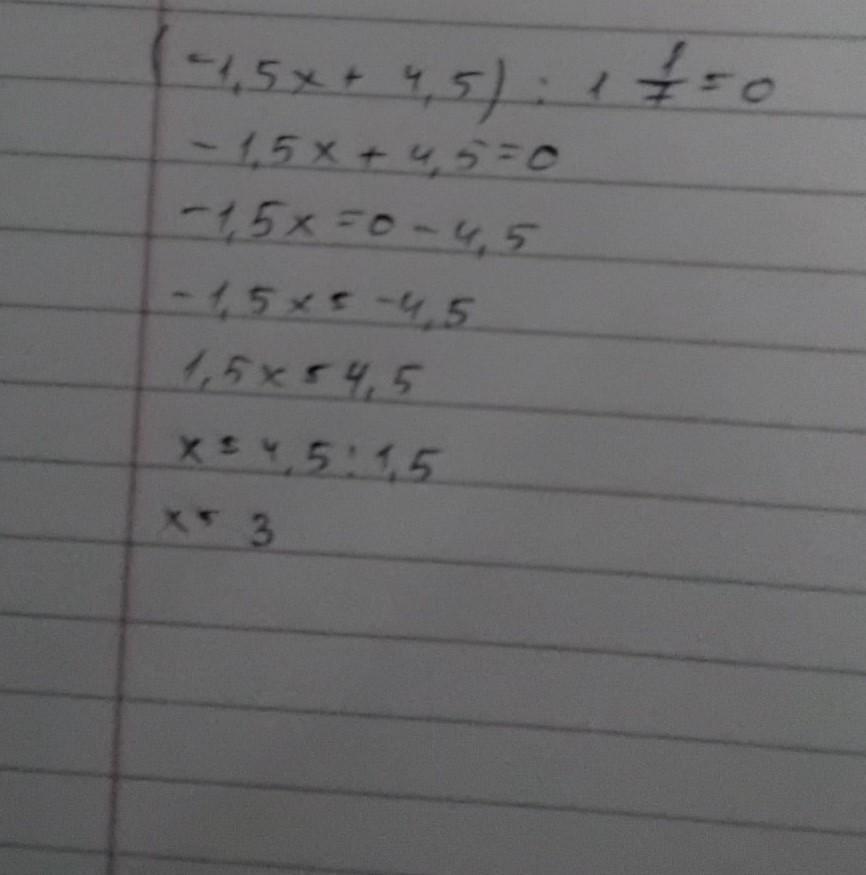 (-1,5x + 4,5) : 1 1/7 = 0
-1,5x + 4,5 = 0
-1,5x = 0 - 4,5
-1,5x = -4,5
1,5x = 4,5
x = 4,5 : 1,5
x = 3